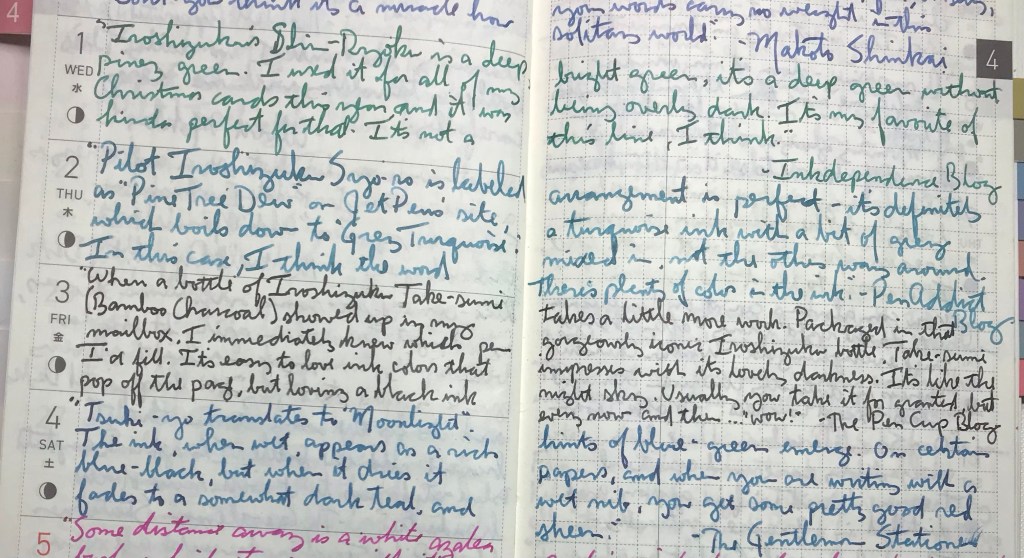 4
your words carry no weight in this
solitary world." -Makoto Shinkai
4
1
WED
水
"Iroshizuku's Shin-Ryoku is a deep
piney green. I used it for all of my
Christmas cards this year and it was
kinda perfect for that. It's not a
bright green, it's a deep green without
being overly dark. It's my favorite of
this line, I think."
-Inkdependence Blog
2
THU
木
"Pilot Iroshizuku Syo-ro is labeled
as "Pine Tree Dew" on JetPens' site,
which boils down to 'Grey Turquoise'.
In this case, I think the word
arrangement is perfect - it's definitely
a turquoise ink with a bit of grey
mixed in, not the other way around.
There's plenty of color in the ink. -Pen Addict
Blog
3
FRI
金
"When a bottle of Iroshizuku Take-sumi
(Bamboo Charcoal) showed up in my
mailbox, I immediately knew which pen
I'd fill. It's easy to love ink colors that
pop off the page, but loving a black ink
takes a little more work. Packaged in that
gorgeously iconic Iroshizuku bottle, Take-sumi
impresses with its lovely darkness. It's like the
night sky. Usually you take it for granted, but
every now and then... "wow!" -The Pen Cup Blog
4
SAT
土
"Tsuki-yo translates to "Moonlight".
The ink, when wet, appears as a rich
blue-black, but when it dries it
fades to a somewhat dark teal, and
hints of blue-green emerge. On certain
papers, and when you are writing with a
wet nib, you get some pretty good red
sheen." -The Gentleman Stationer
5
"Some distance away is a white azalea